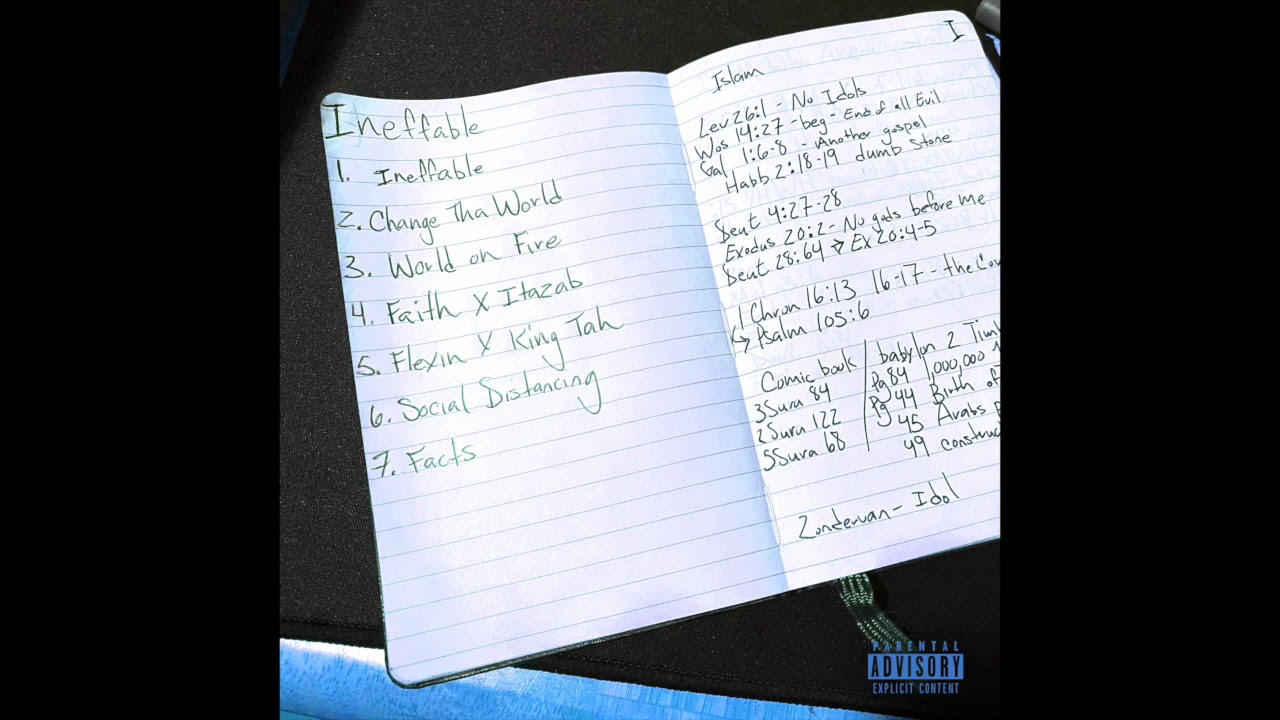 Ineffable
1. Ineffable
2. Change Tha World
3. World on Fire
4. Faith X Itazab
5. Flexin X King Tah
6. Social Distancing
7. Facts
I
Islam
Lev 26:1 - No Idols
Wos 14:27 - beg - End of all Evil
Gal 1:6-8 - Another gospel
Habb 2:18-19 dumb stone
Deut 4:27-28
Exodus 20:2 - No gods before me
Deut 28:64 → Ex 20:4-5
1 Chron 16:13 16-17 - the Cov
↳ Psalm 105:6
Comic book / babylon 2 Timb
3Sura 84 / Pg 84 1,000,000
2Sura 122 / Pg 44 Birth of
5Sura 68 / 45 Arabs
49 construc
Zondervan - Idol
PARENTAL
ADVISORY
EXPLICIT CONTENT